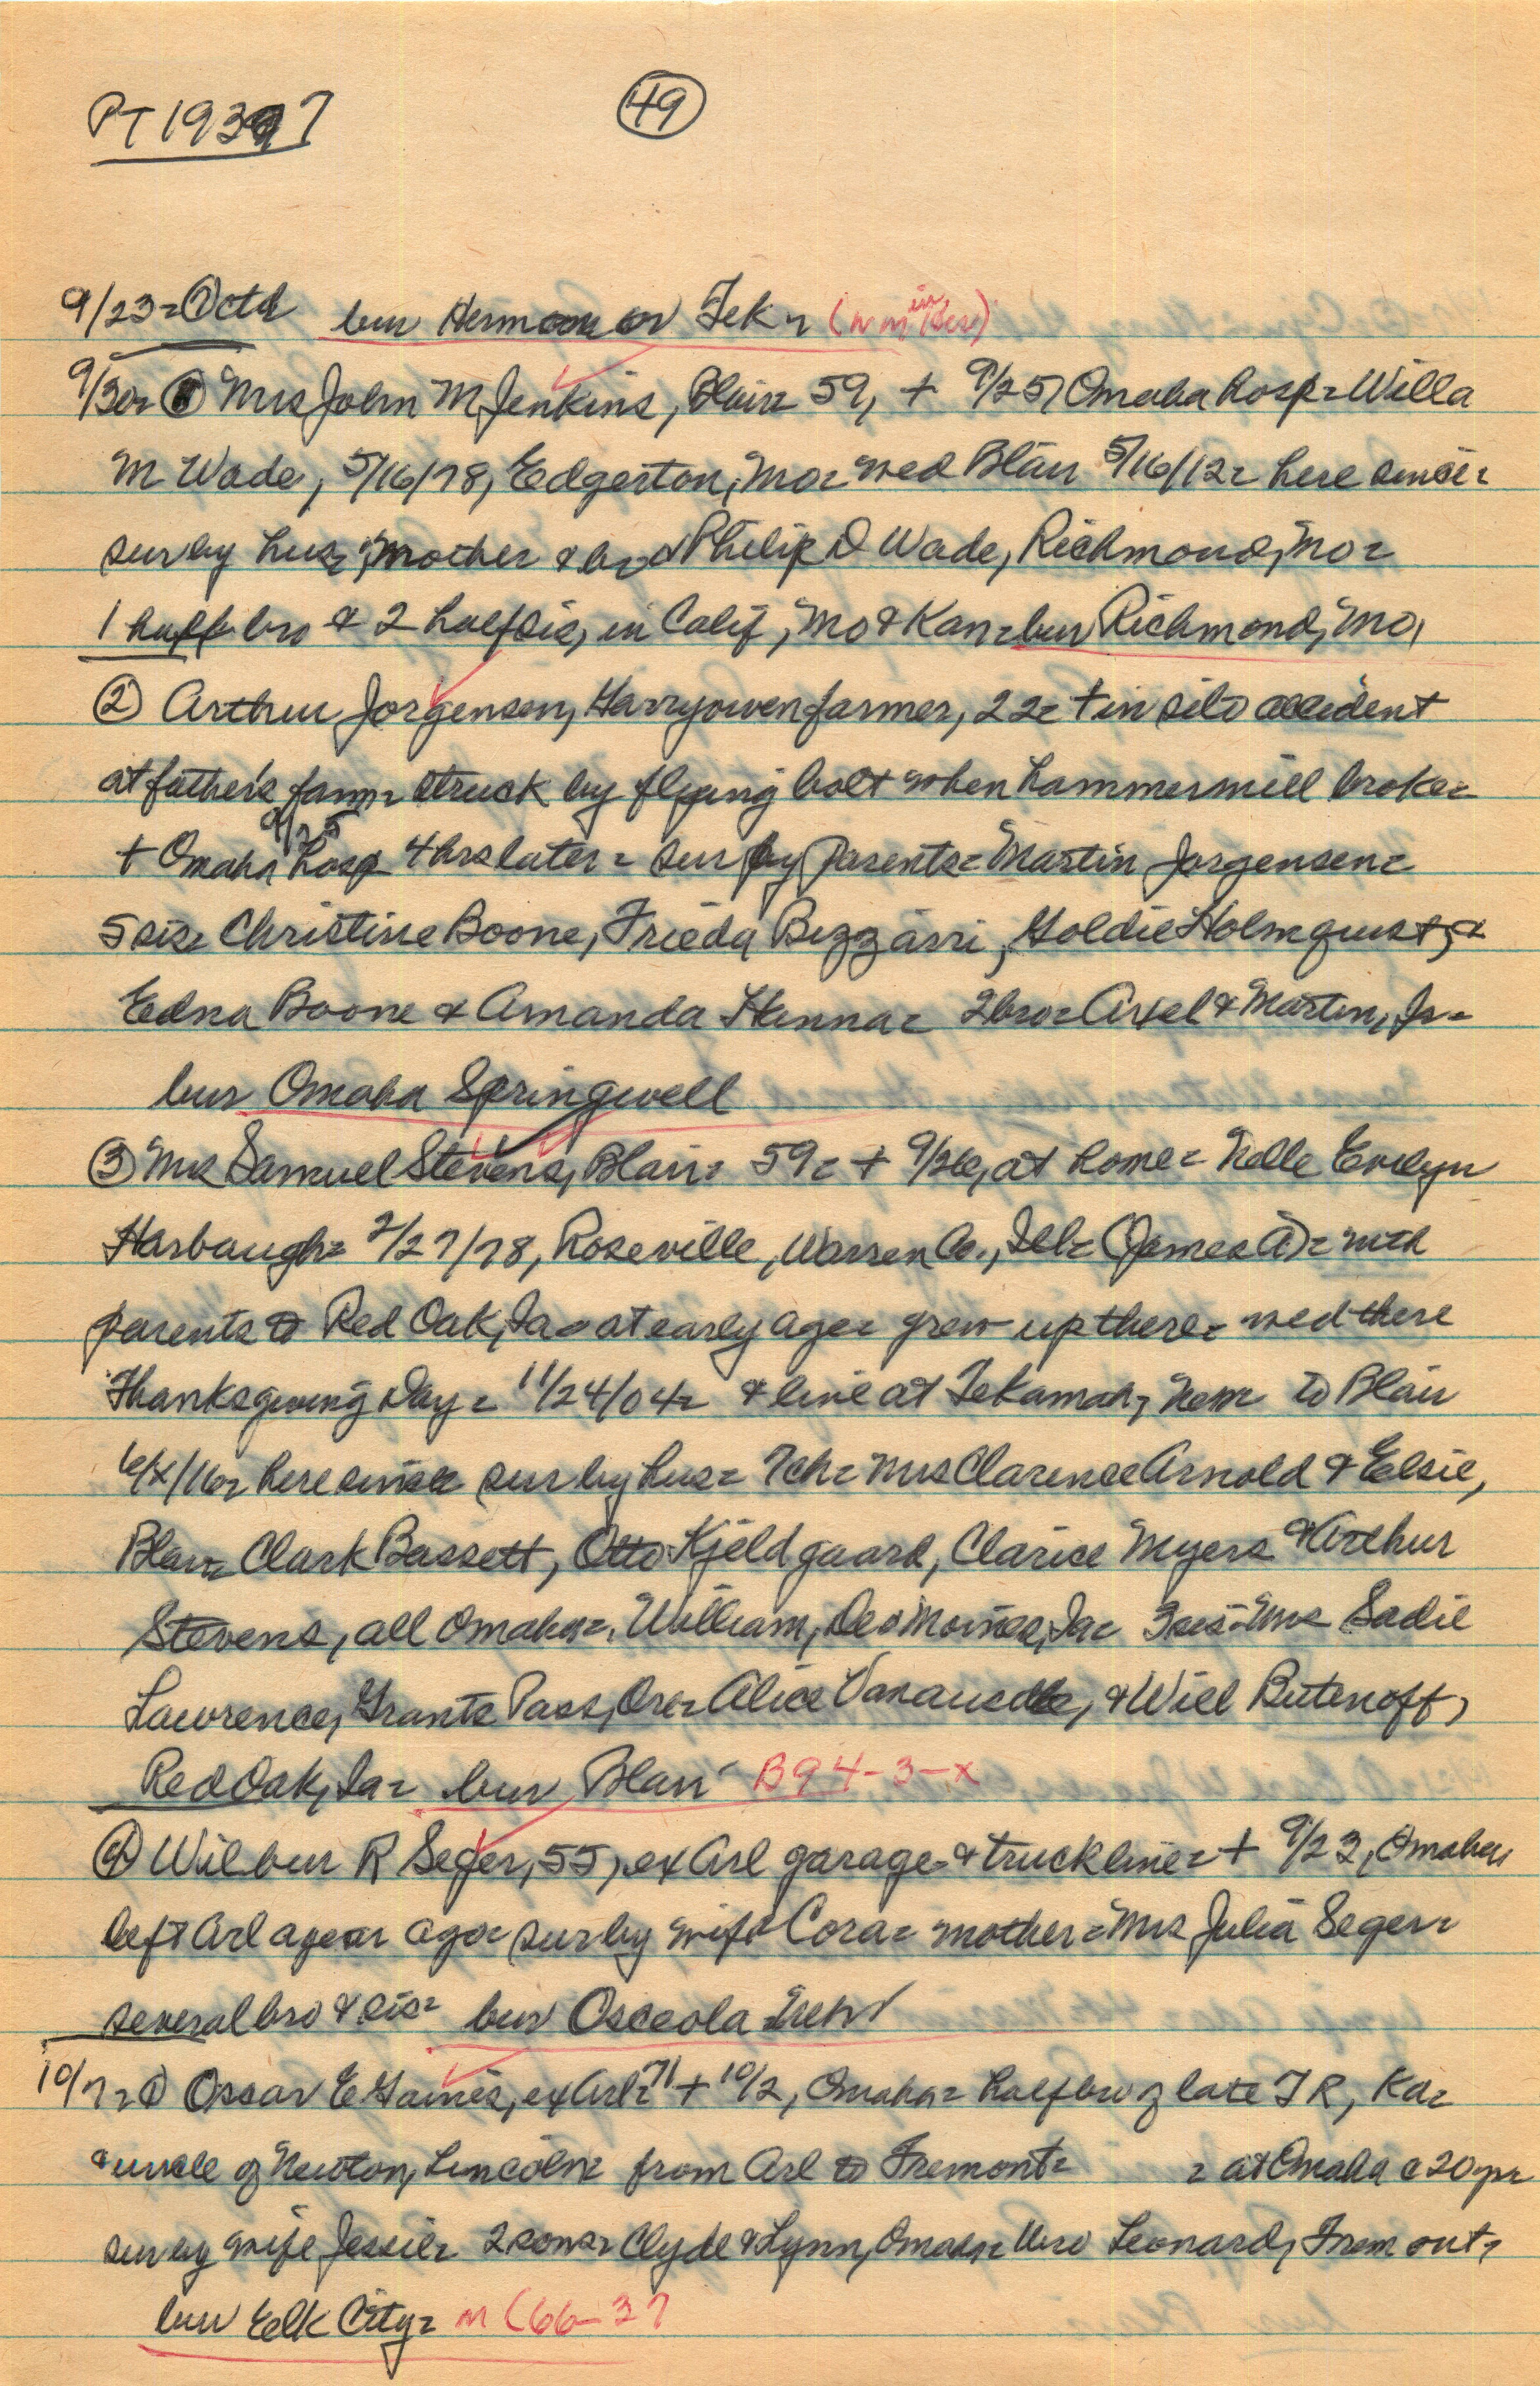 PT 1937
49
9/23= ① ctd bur Herman or Tek= (nm in Her)
9/30= ① Mrs John M Jenkins, Blair= 59, + 9/25, Omaha hosp= Willa
M Wade, 5/16/78, Edgerton, Mo= wed Blair 5/16/12= here since=
sur by hus, mother & bro Philip D Wade, Richmond, Mo=
1 half bro & 2 half sis, in Calif, Mo & Kan= bur Richmond, Mo,
② Arthur Jorgensen, Harryowen farmer, 22= + in silo accident
at father's farm= struck by flying bolt when hammermill broke=
+ Omaha hosp 9/25 4 hrs later= sur by parents= Martin Jorgensen=
5 sis= Christine Boone, Frieda Bizzarri, Goldie Holmquist, &
Edna Boone & Amanda Hanna= 2 bro= Axel & Martin, Jr=
bur Omaha Springwell
③ Mrs Samuel Stevens, Blair= 59= + 9/26, at home= Nelle Evelyn
Harbaugh= 2/27/78, Roseville, Warren Co., Ill= (James A)= with
parents to Red Oak, Ia= at early age= grew up there= wed there
Thanksgiving Day= 11/24/04= & live at Tekamah, Nem= to Blair
6/x/16= here since sur by hus= 7 ch= Mrs Clarence Arnold & Elsie,
Blair= Clark Bassett, Otto Kjeldgaard, Clarice Myers & Arthur
Stevens, all Omaha=, William, Des Moines, Ia= 3 sis= Mrs Sadie
Lawrence, Grants Pass, Ore= Alice Vanausdle, & Will Butenoff,
Red Oak, Ia= bur Blair B94-3-x
④ Wilbur R Seger, 55, ex Arl garage & truckline= + 9/23, Omaha
left Arl a year ago= sur by wife Cora= mother= Mrs Julia Seger=
several bro & sis= bur Osceola
10/7= ① Oscar E Gaines, ex Arl= 71 + 10/2, Omaha= half bro of late T R, Ka=
& uncle of Newton, Lincoln= from Arl to Fremont= = at Omaha c 20 yr=
sur by wife Jessie= 2 sons= Clyde & Lynn, Omaha= bro Leonard, Fremont,
bur Elk City= m C66-37